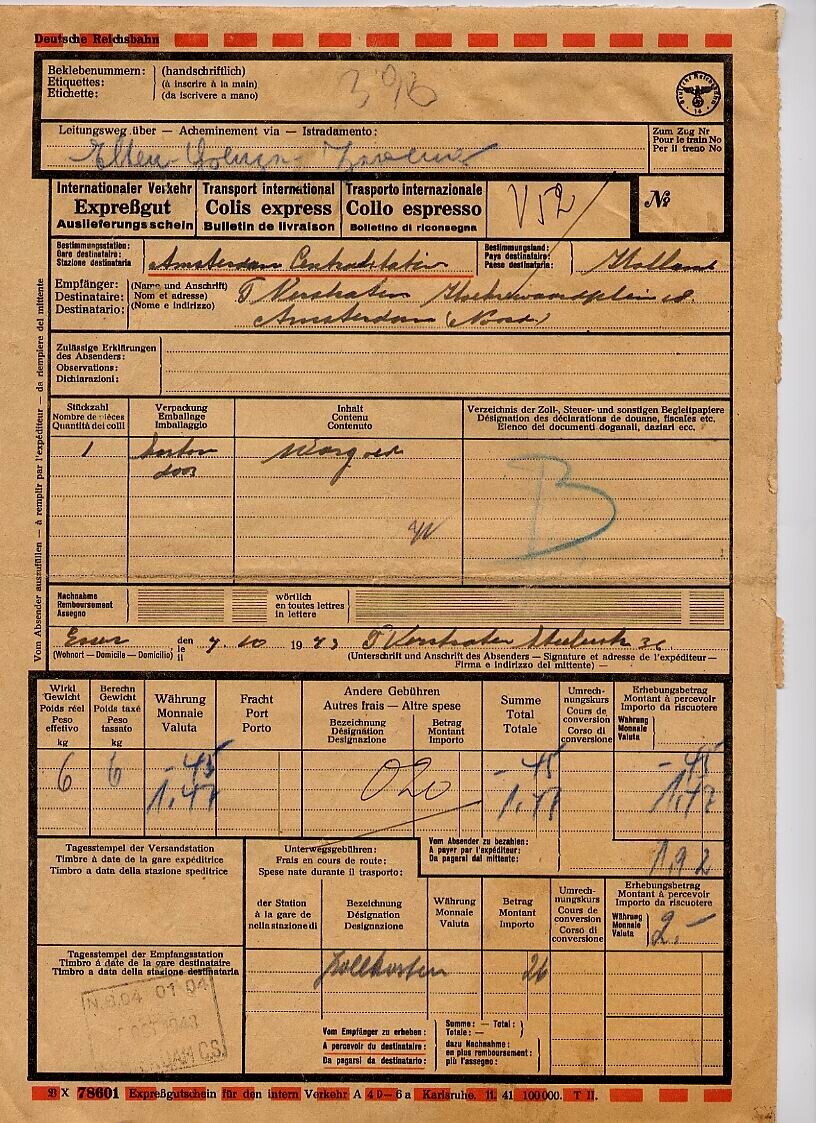 Deutsche Reichsbahn
Beklebenummern: (handschriftlich)
Etiquettes: (à inscrire à la main)
Etichette: (da iscrivere a mano)
Leitungsweg über — Acheminement via — Istradamento:
Zum Zug Nr
Pour le train No
Per il treno No
Elten
Internationaler Verkehr
Expreßgut
Auslieferungsschein
Transport international
Colis express
Bulletin de livraison
Trasporto internazionale
Collo espresso
Bolletino di riconsegna
V 52
No
Bestimmungsstation:
Gare destinataire:
Stazione destinataria
Amsterdam Centraalstation
Bestimmungsland:
Pays destinataire:
Paese destinataria:
Holland
Empfänger: (Name und Anschrift)
Destinataire: (Nom et adresse)
Destinatario: (Nome e indirizzo)
Amsterdam (Noord)
Zulässige Erklärungen
des Absenders:
Observations:
Dichiarazioni:
Stückzahl
Nombre de pièces
Quantità dei colli
Verpackung
Emballage
Imballaggio
Inhalt
Contenu
Contenuto
Verzeichnis der Zoll-, Steuer- und sonstigen Begleitpapiere
Désignation des déclarations de douane, fiscales etc.
Elenco dei documenti doganali, daziari ecc.
1 karton
doos
B
Nachnahme
Remboursement
Assegno
wörtlich
en toutes lettres
in lettere
Essen den 7. 10 1943
le
il
(Wohnort — Domicile — Domicilio)
(Unterschrift und Anschrift des Absenders — Signature et adresse de l'expéditeur —
Firma e indirizzo del mittente) —
Vom Absender auszufüllen — à remplir par l'expéditeur — da riempiere del mittente
Wirkl
Gewicht
Poids réel
Peso
effetivo
kg
Berechn
Gewicht
Poids taxé
Peso
tassato
kg
Währung
Monnaie
Valuta
Fracht
Port
Porto
Andere Gebühren
Autres frais — Altre spese
Bezeichnung
Désignation
Designazione
Betrag
Montant
Importo
Summe
Total
Totale
Umrech-
nungskurs
Cours de
conversion
Corso di
conversione
Erhebungsbetrag
Montant à percevoir
Importo da riscuotere
Währung
Monnaie
Valuta
6 6 -45 020 -45 -45
1,47 1,47 1,47
Vom Absender zu bezahlen:
A payer par l'expéditeur:
Da pagarsi dal mittente:
1,92
Tagesstempel der Versandstation
Timbre à date de la gare expéditrice
Timbro a data della stazione speditrice
Unterwegsgebühren:
Frais en cours de route:
Spese nate durante il trasporto:
der Station
à la gare de
nella stazione di
Bezeichnung
Désignation
Designazione
Währung
Monnaie
Valuta
Betrag
Montant
Importo
Umrech-
nungskurs
Cours de
conversion
Corso di
conversione
Erhebungsbetrag
Montant à percevoir
Importo da riscuotere
Währung
Monnaie
Valuta
2.-
Tagesstempel der Empfangsstation
Timbro à date de la gare destinataire
Timbro a data della stazione destinataria
Zollkosten 26
N.B.04 01 04
1943
DAM C.S.
Vom Empfänger zu erheben:
A percevoir du destinataire:
Da pagarsi da destinatario:
Summe: — Total:
Totale: —
dazu Nachnahme:
en plus remboursement:
più l'assegno:
X 78601 Expreßgutschein für den intern Verkehr A 4 D— 6 a Karlsruhe. 11. 41 100000. T II.